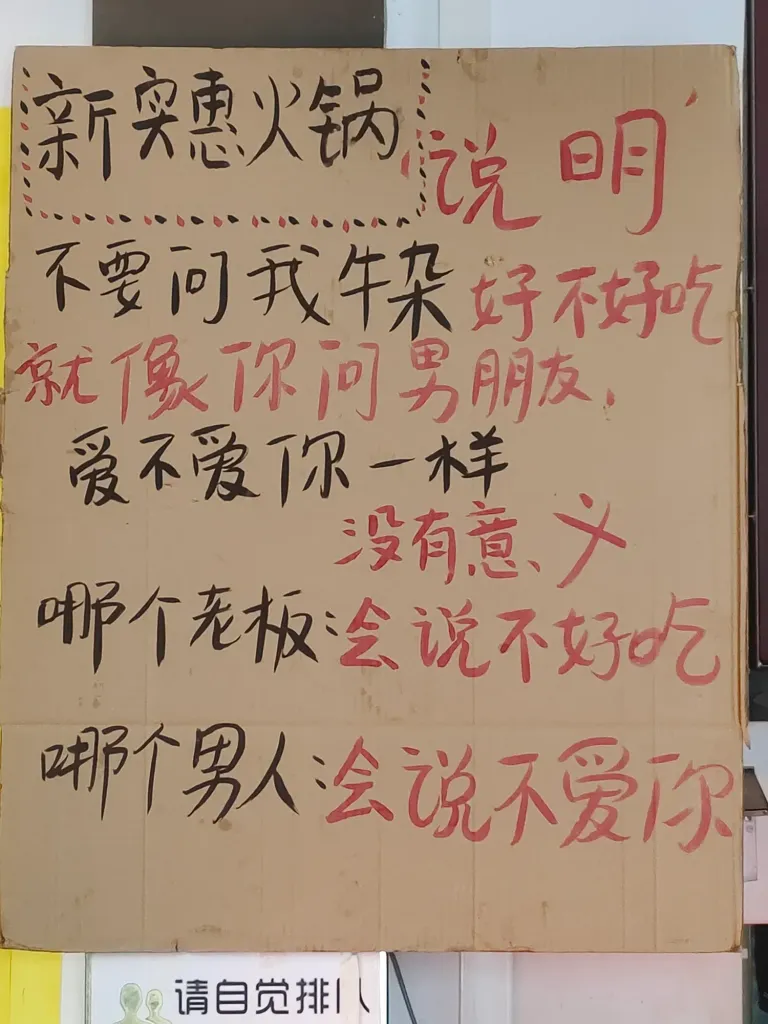 新实惠火锅 说明
不要问我牛杂 好不好吃
就像你问男朋友,
爱不爱你一样
没有意义
哪个老板:会说不好吃
哪个男人:会说不爱你
请自觉排队